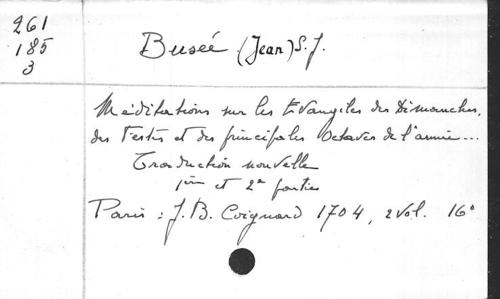 261
185
3
Buseé (Jean) S. J.
Méditations sur les Evangiles des Dimanches,
des Festes et des principales Octaves de l'année...
Traduction nouvelle
1ère et 2e parties
Paris : J. B. Coignard 1704, 2 vol. 16°